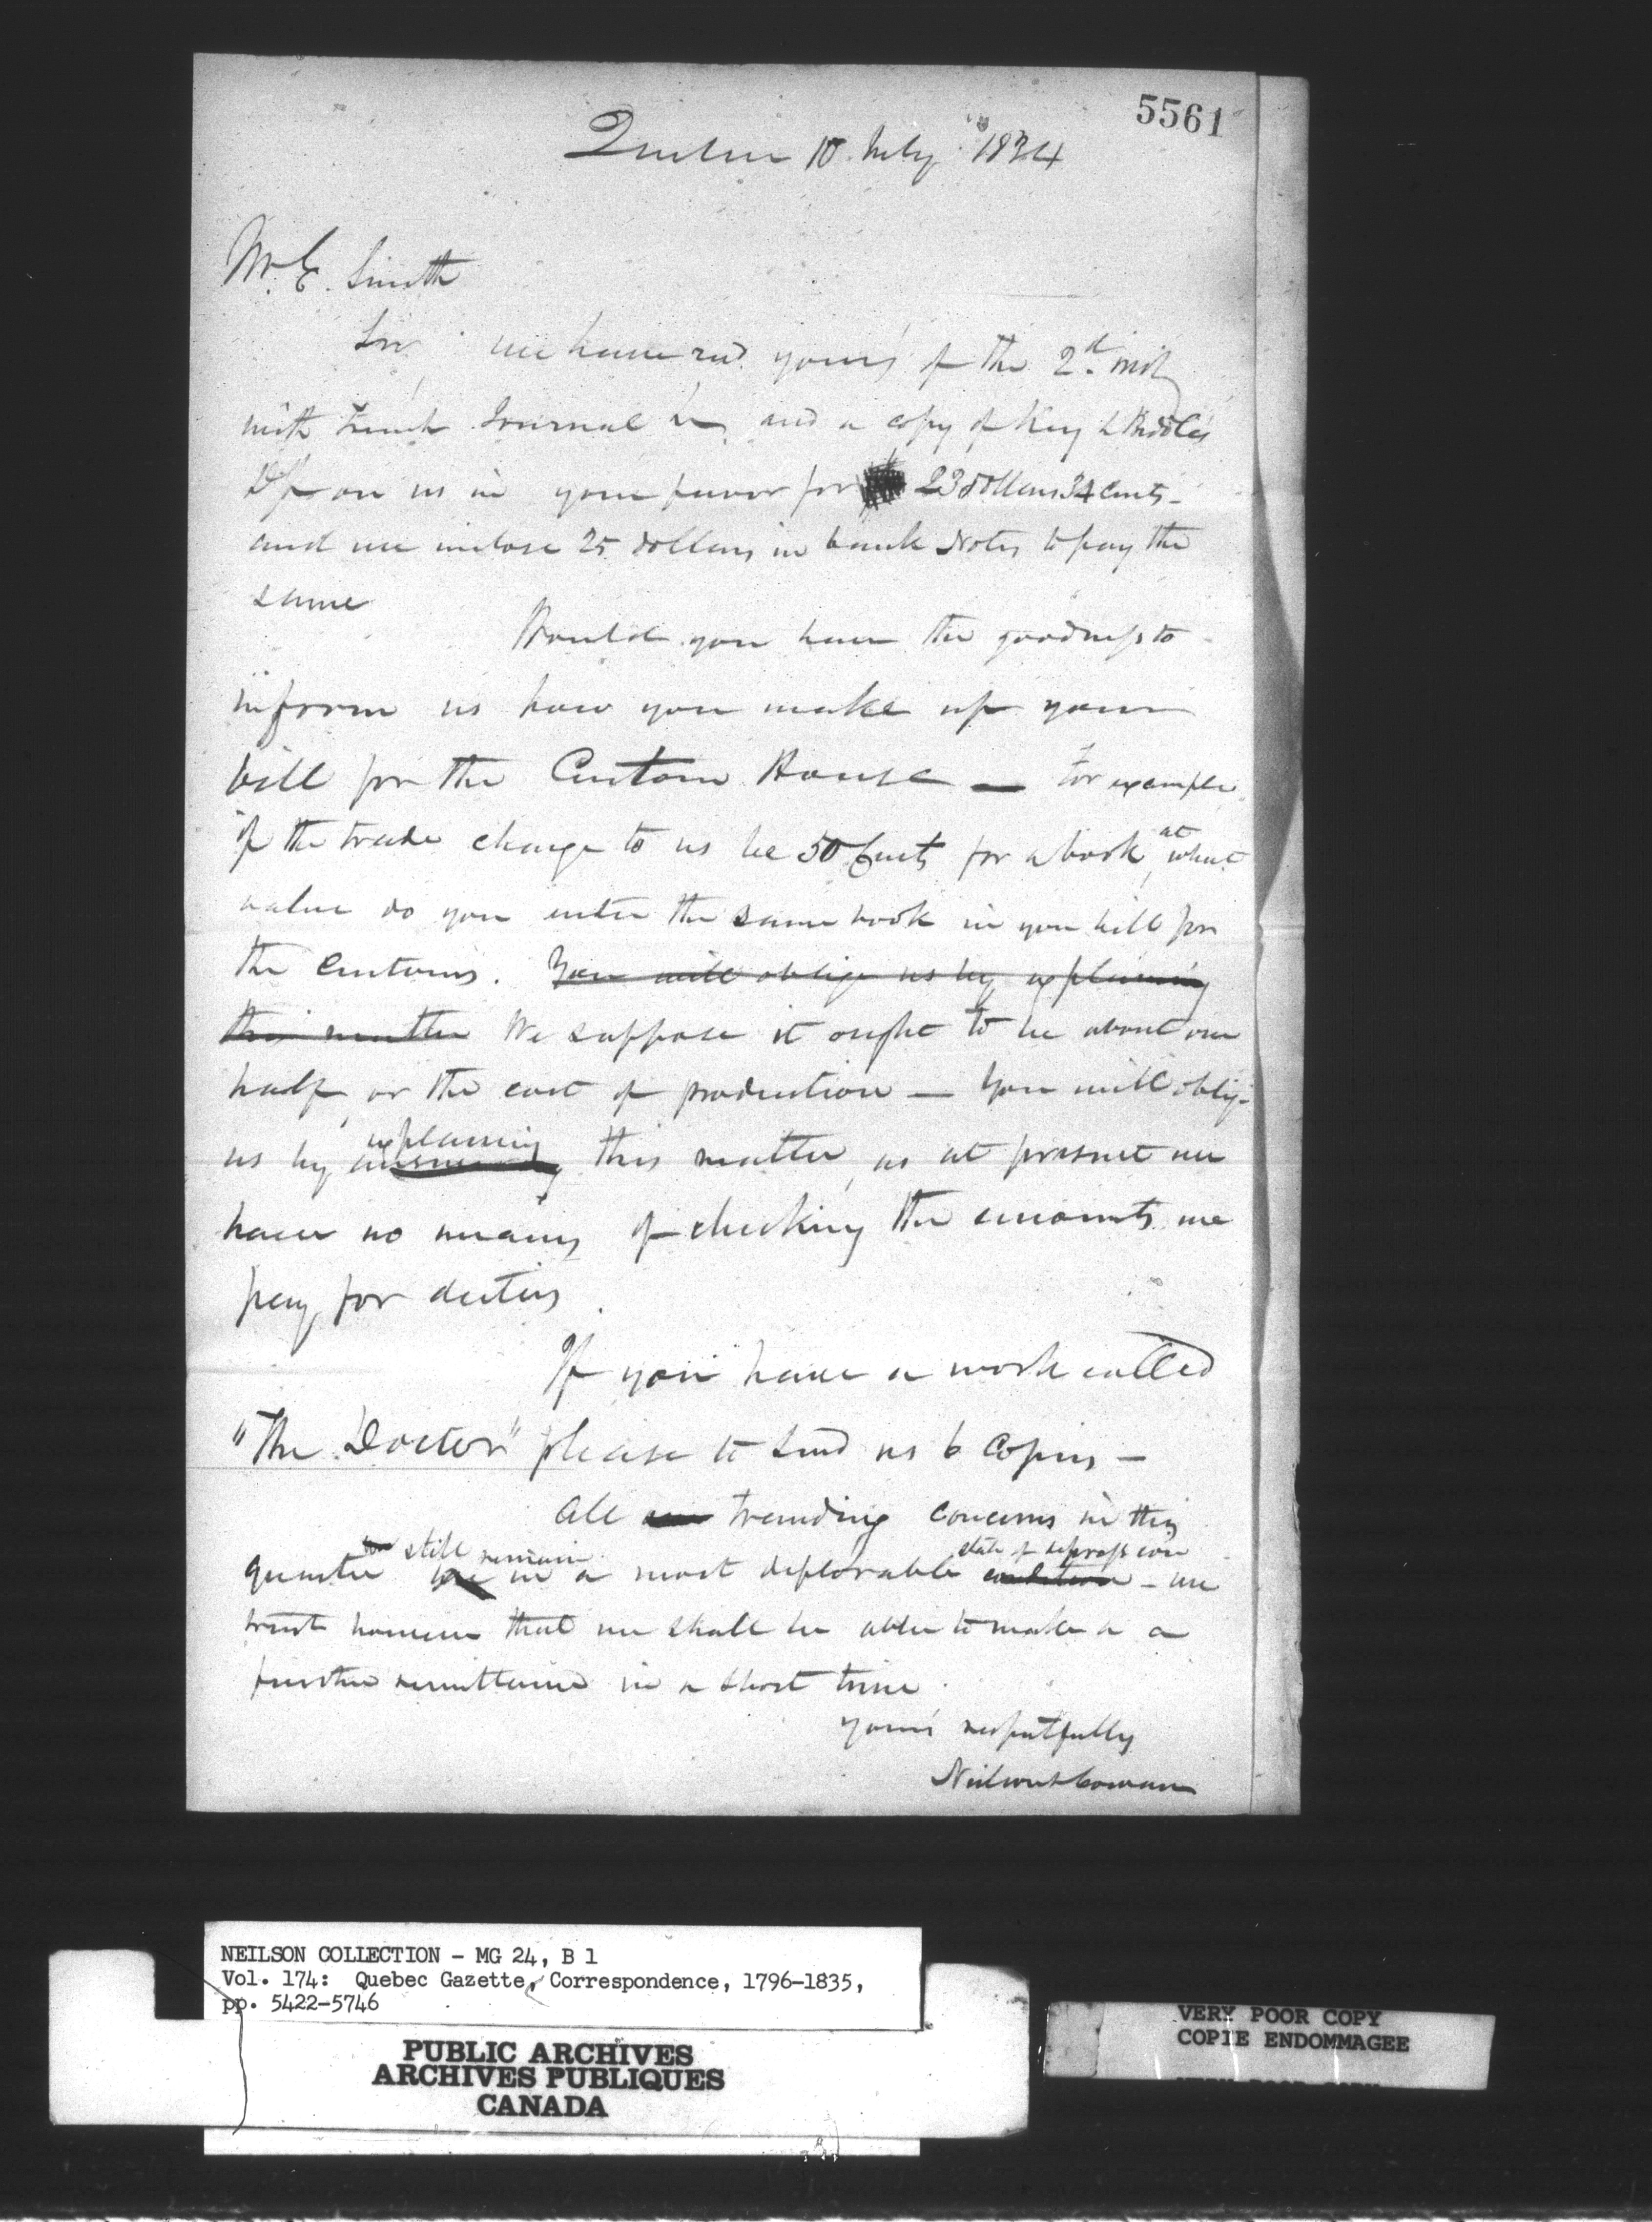 5561
Quebec 10 July 1834
Mr. E. Smith
Sir, we have recd. yours of the 2d. inst
with French Journal &c, and a copy of Key & Biddle's
Dft on us in your favor for 23 dollars 34 cents -
and we inclose 25 dollars in bank Notes to pay the
same
Would you have the goodness to
inform us how you make up your
bill for the Custom House — For example
if the trade charge to us be 50 Cents for a book, at what
value do you enter the same book in you bill for
the Customs. You will oblige us by explaining
this matter We suppose it ought to be about one
half, or the cost of production — You will oblige
us by answering explaining this matter, as at present we
have no means of checking the amounts we
pay for duties.
If you have a work called
"The Doctor" please to send us 6 Copies —
All trending concerns in this
quarter are still remain in a most deplorable condition state of depression - we
trust however that we shall be able to make a a
further remittance in a short time.
yours respectfully
Neilson & Cowan
NEILSON COLLECTION - MG 24, B 1
Vol. 174: Quebec Gazette, Correspondence, 1796-1835,
pp. 5422-5746
PUBLIC ARCHIVES
ARCHIVES PUBLIQUES
CANADA
VERY POOR COPY
COPIE ENDOMMAGEE